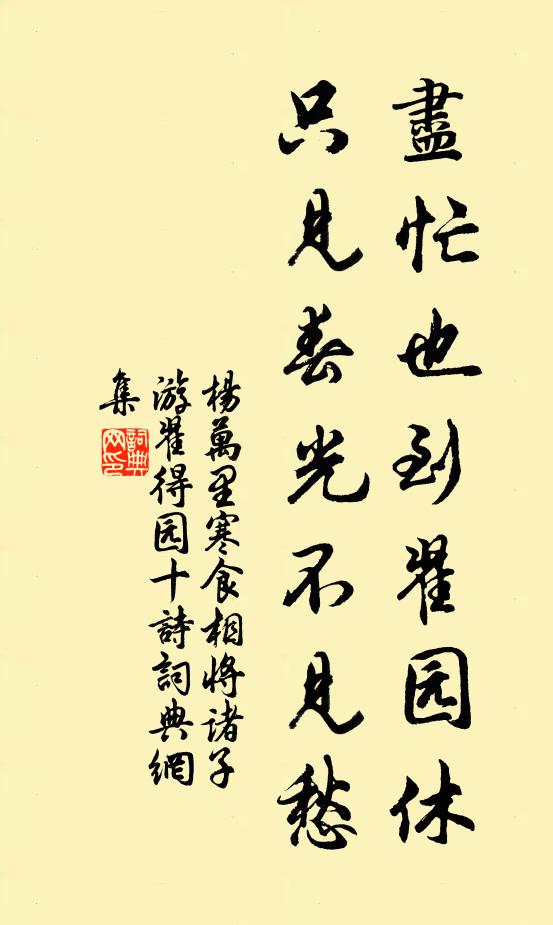 盡忙也到翟园休
只見春光不見愁
楊萬里寒食相将诸子
游翟得园十詩詞典網
集
詞典
网印